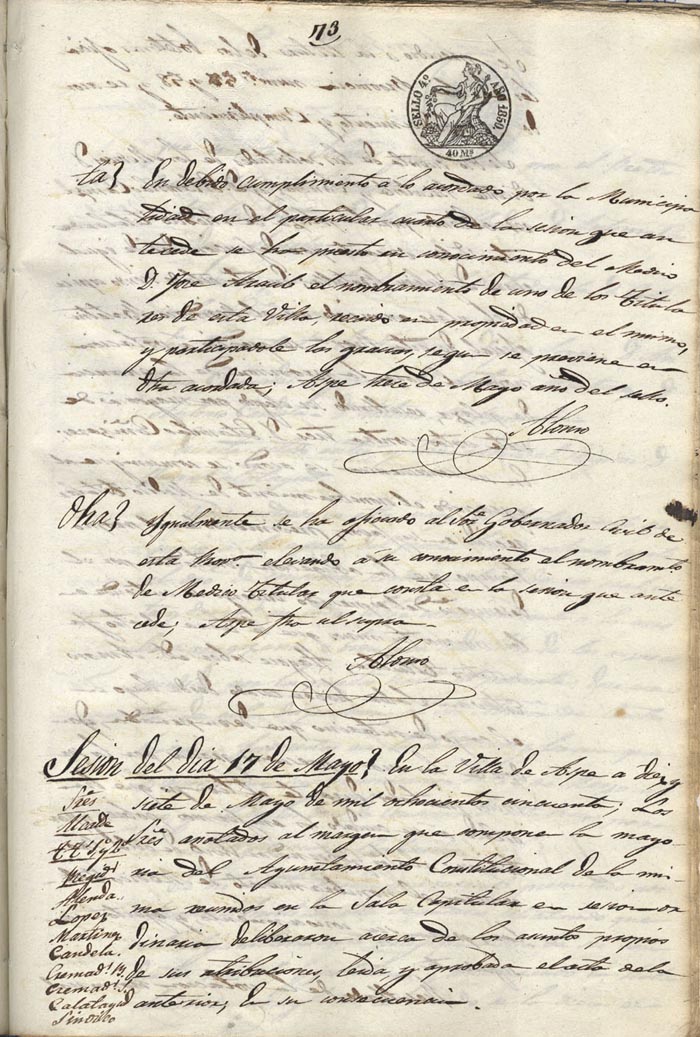 73
SELLO 4º AÑO 1850.
40 Ms
ta} En debido cumplimiento á lo acordado por la Municipa
lidad en el particular cuarto de la sesion que an
tecede se ha puesto en conocimiento del Medico
D. Jose el nombramiento de uno de los Titula
res de esta Villa, recaido en propiedad en el mismo,
y participadole las gracias, segun se previene en
dha acordada; Aspe trece de Mayo año del sello.
Alonso
Otra} Ygualmente se ha oficiado al Sor. Gobernador Civil de
esta Prova. elevando a su conocimiento el nombramto
de Medico Titular que consta en la sesion que ante
cede; Aspe fha ut supra.
Alonso
Sesion del dia 17 de Mayo} En la Villa de Aspe a diez y
siete de Mayo de mil ochocientos cincuenta; Los
Sres. anotados al margen que compone la mayo
ria del Ayuntamiento Constitucional de la mis
ma reunidos en la Sala Capitular en sesion or
dinaria deliberaron acerca de los asuntos propios
de sus atribuciones, leida y aprobada el acta de la
anterior; En su consecuencia.
Sres
Alcalde
Ttes 1º y 2º
Regids
Allenda.
Lopez
Martinez
Candela.
Cremads
Cremads
Calatayud
Sindico